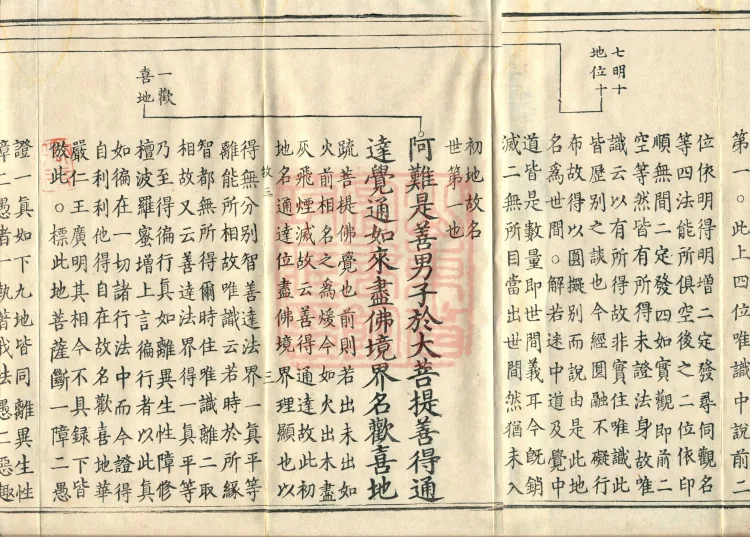 七明十
地位十
第一。此上四位唯識中說前二
位依明得明增二定發尋同觀名
等四法能所俱空後之二位依印
順無間二定發四如實觀即前二
空等然皆有所得未證法身故唯
識云以有所得故非實住唯識此
皆歷別之談也今經圓融不礙行
布故得以圓擬別而說由是此地
名為世間。解若迷中道及覺中
道皆是數量即世間義耳今旣銷
滅二無所目當出世間然猶未入
初地故名
世第一也
一歡
喜地
阿難是善男子於大菩提善得通
達覺通如來盡佛境界名歡喜地
疏菩提佛覺也前則若出未出如
火前相名之為煖今如火出木盡
灰飛煙滅故云善得通達故此初
地名通達位盡佛境界理顯也以
三
得無分別智善達法界一真平等
離能所相故唯識云若時於所緣
智都無所得爾時住唯識離二取
相故又云善達法界得一真平等
乃至得徧行真如離異生性障修
檀波羅蜜增上言徧行者以此真
如徧在一切諸行法中而今證得
自利利他得自在故名歡喜地華
嚴仁王廣明其相今不具録下皆
倣此。標此地菩薩斷一障二愚
證一真如下九地皆同離異生性
障二愚者一執著我法愚二惡趣